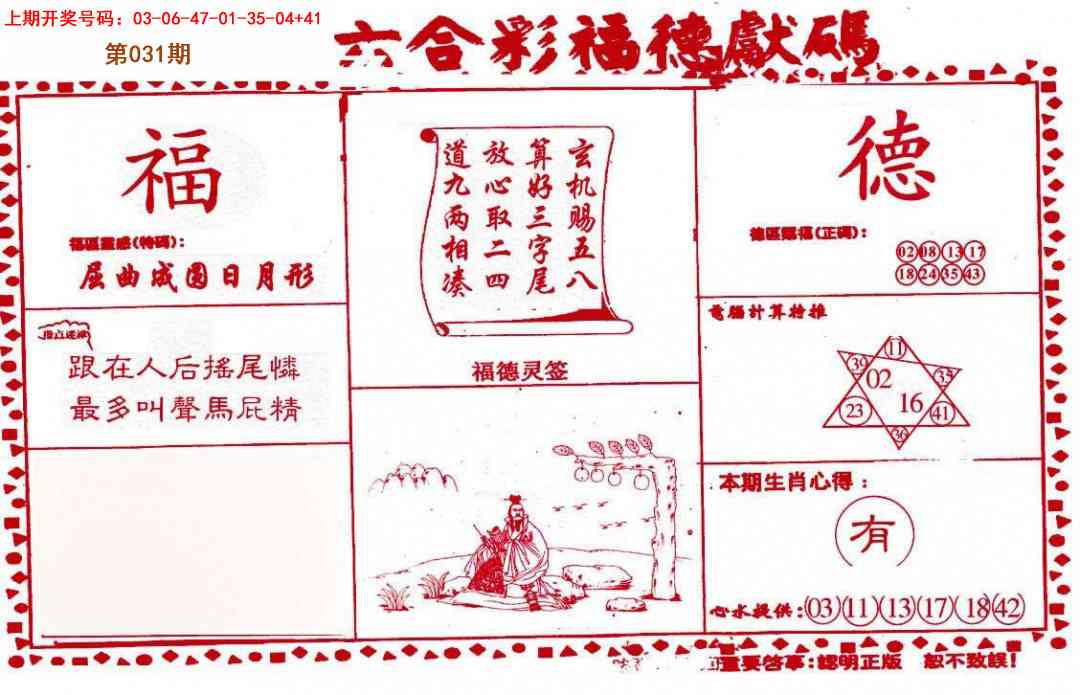 上期开奖号码：03-06-47-01-35-04+41
第031期
六合彩福德獻碼
福
福區靈感(特碼)：
屈曲成圆日月形
跟在人后摇尾憐
最多叫聲馬屁精
玄机赐五八
算好三字尾
放心取二四
道九两相凑
福德灵签
德
德區賜福(正碼)：
02 08 13 17
18 24 35 43
電腦計算特推
11
39 35
02
16
23 41
36
本期生肖心得：
有
心水提供:(03)(11)(13)(17)(18)(42)
重要啓事:認明正版 恕不致誤!